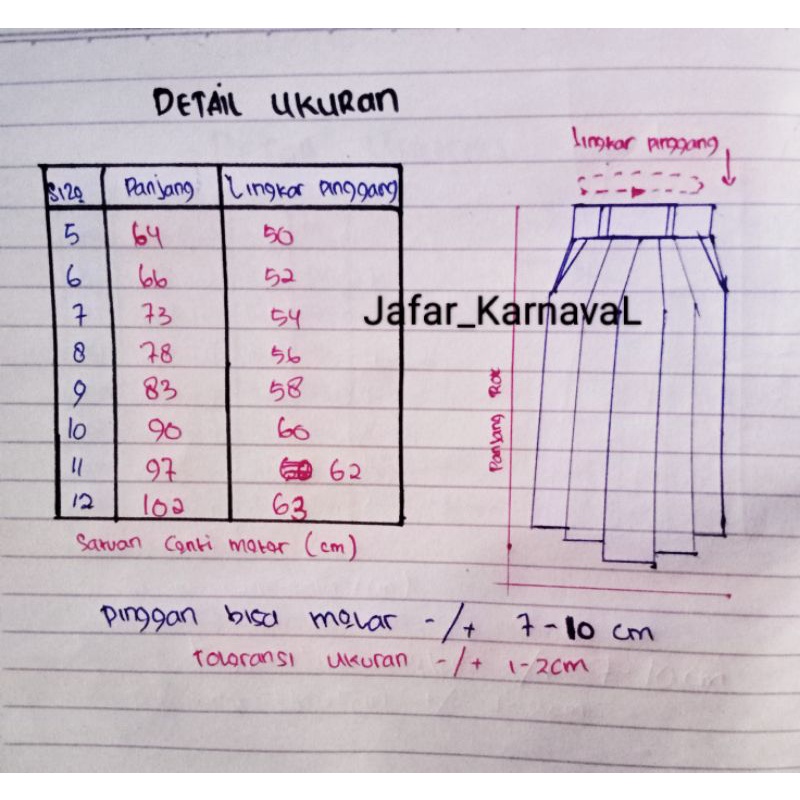 DETAIL UKURAN
Lingkar pinggang
Size Panjang Lingkar pinggang
5 64 50
6 66 52
7 73 54
Jafar_KarnavaL
8 78 56
9 83 58
10 90 60
11 97 62
12 102 63
Panjang Rok
Satuan Centi meter (cm)
Pinggan bisa melar -/+ 7-10 cm
Toleransi ukuran -/+ 1-2cm